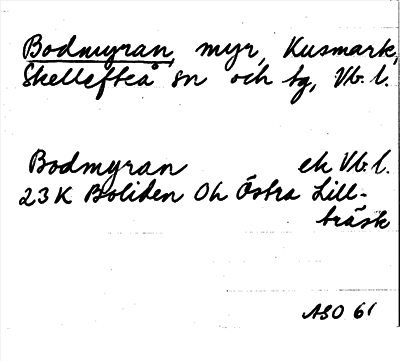 Bodmyran, myr, Kusmark,
Skellefteå sn och tg, Vb. l.
Bodmyran ek Vb. l.
23K Boliden Oh Östra Lill-
träsk
ASO 61